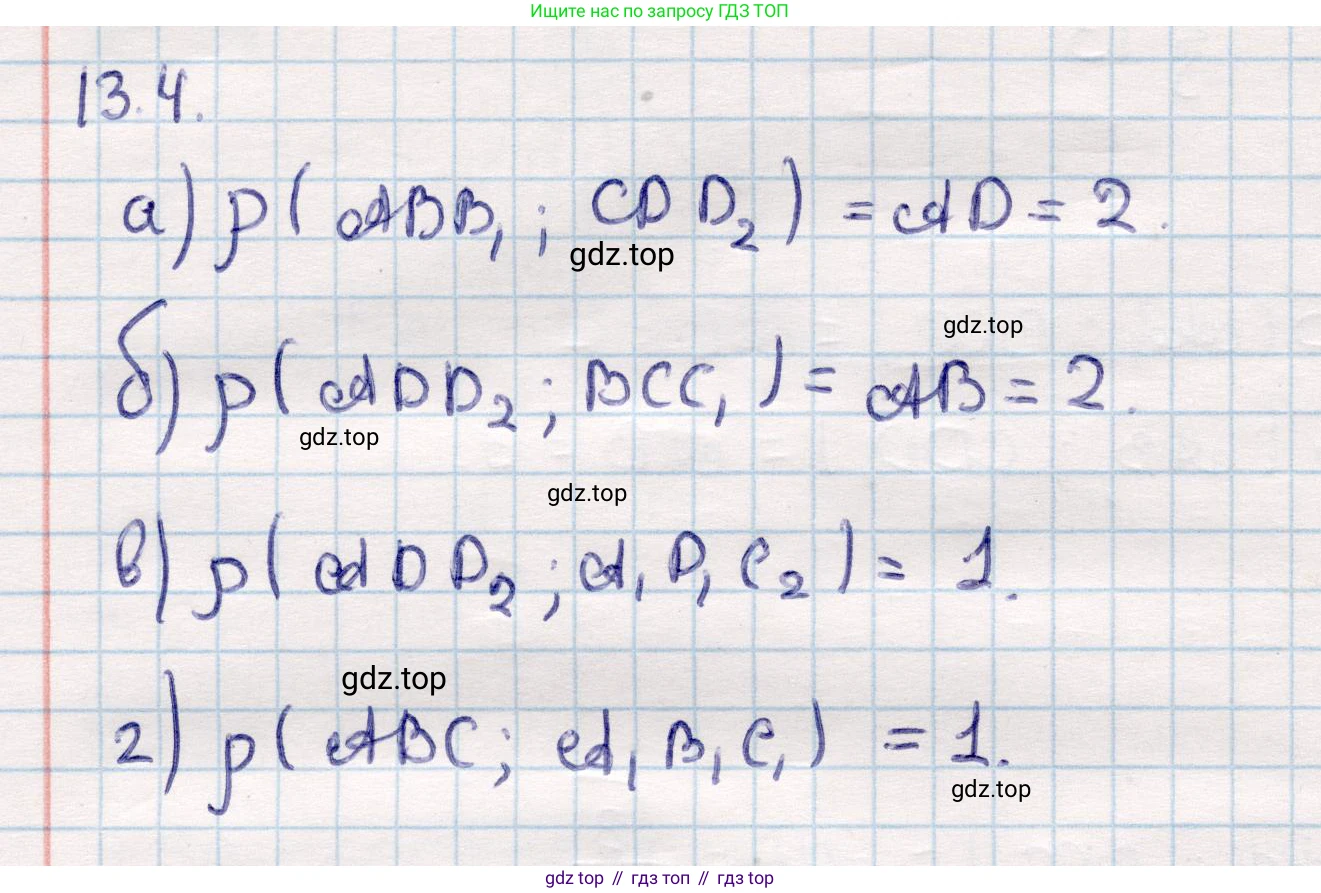 Ищите нас по запросу ГДЗ ТОП
13.4.
а) ρ(ABB₁; CDD₂) = AD = 2.
gdz.top
gdz.top
б) ρ(ADD₂; BCC₁) = AB = 2.
gdz.top
gdz.top
в) ρ(ADD₂; A₁D₁C₂) = 1.
gdz.top
г) ρ(ABC; A₁B₁C₁) = 1.
gdz.top
gdz top // гдз топ // gdz top